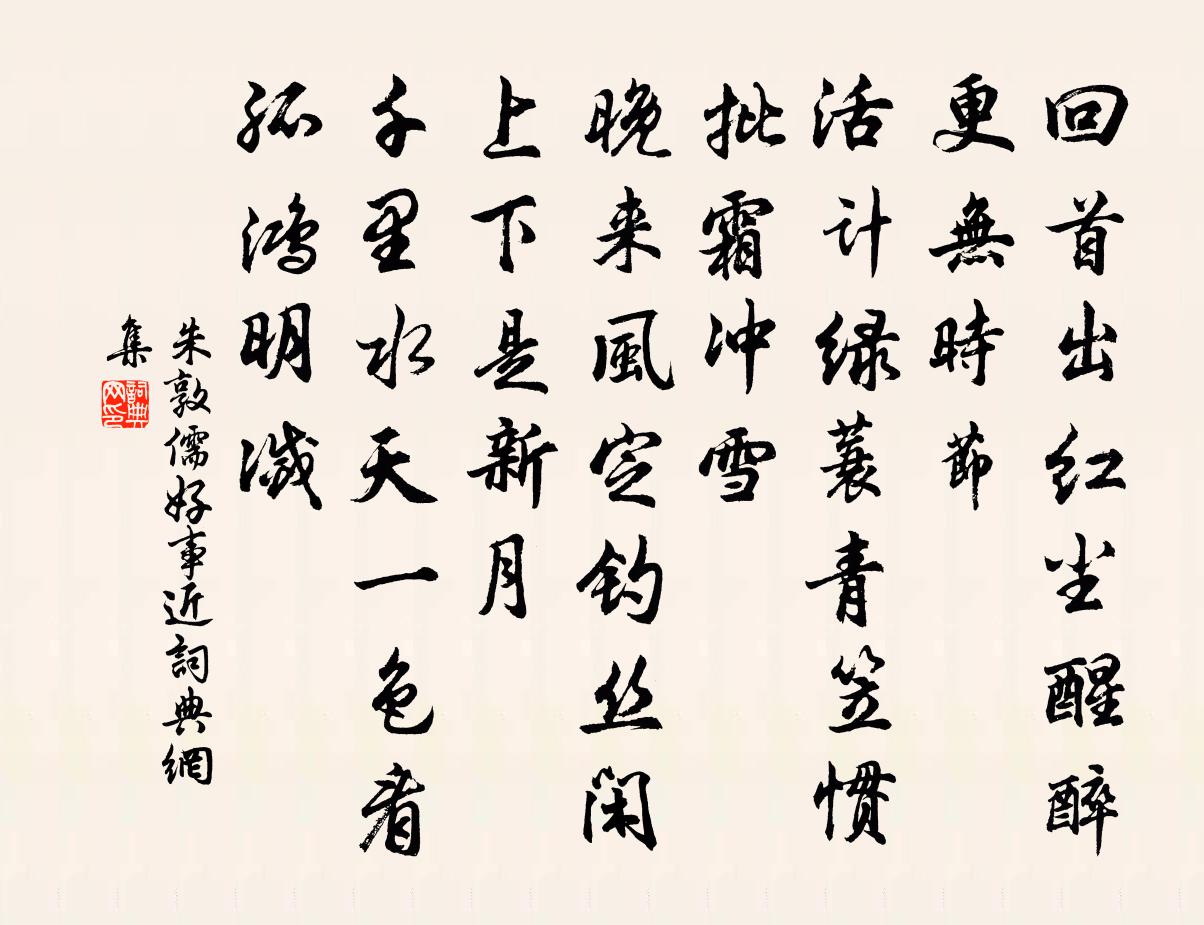 回首出红尘醒醉
更無時節
活计绿蓑青笠惯
批霜冲雪
晚来風定钓丝闲
上下是新月
千里水天一色看
孤鸿明滅
朱敦儒好事近詞典網
集
詞典网印